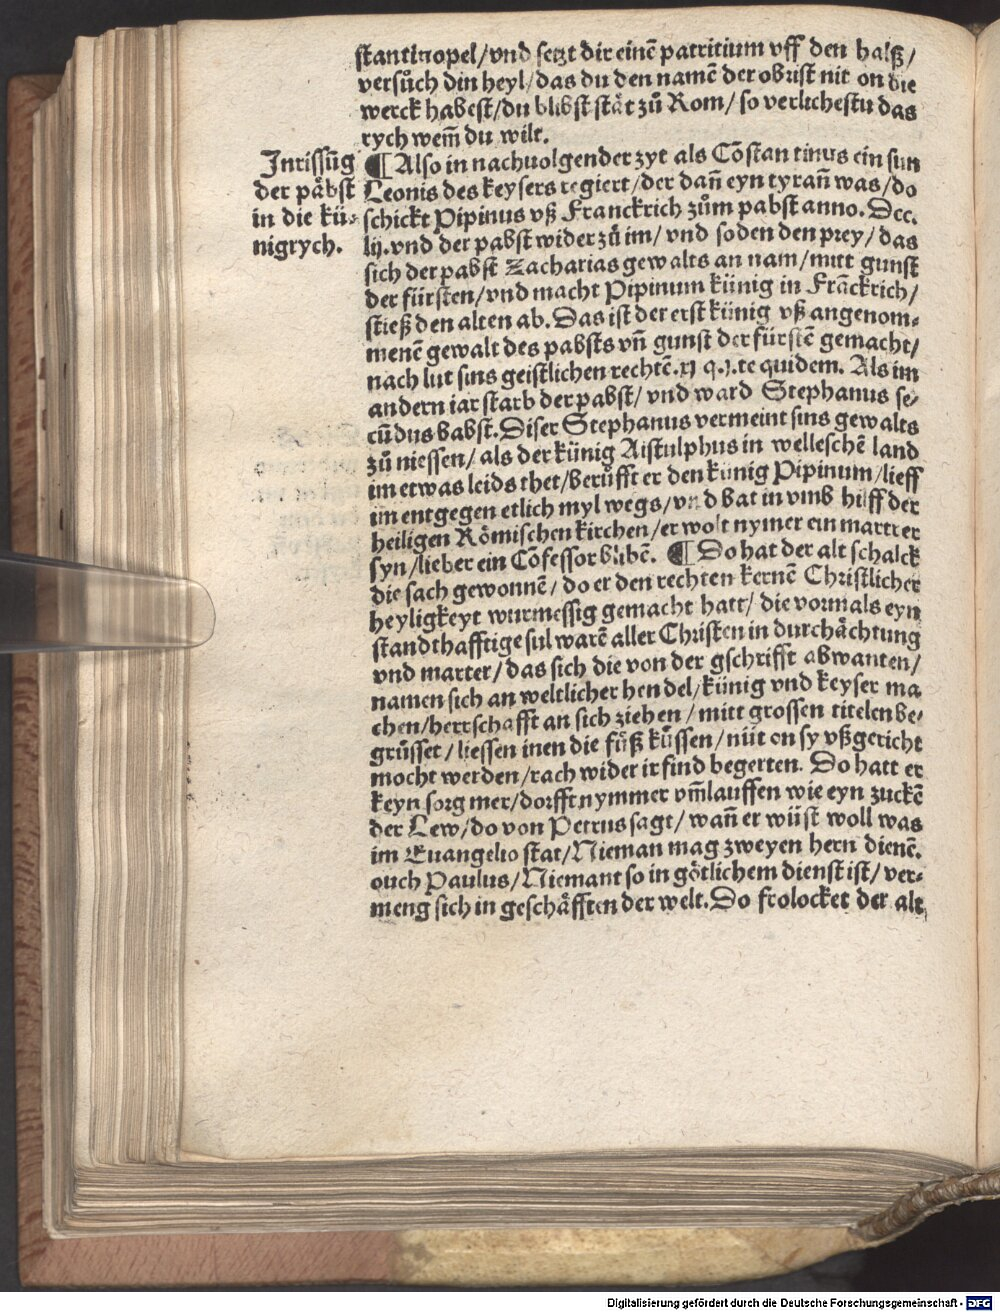 stantinopel/vnd setzt dir einē patritium vff den halß/
versůch din heyl/das du den namē der obrist nit on die
werck habest/du blibst stät zů Rom/so verlichestu das
rych wem̄ du wilt.
Inrissūg
der päbst
in die kü-
nigrych.
¶ Also in nachuolgender zyt als Cōstantinus ein sun
Leonis des keysers regiert/der dañ eyn tyrañ was/do
schickt Pipinus vß Franckrich zům pabst anno. Dcc.
lij. vnd der pabst wider zů im/vnd soden den prey/das
sich der pabst Zacharias gewalts an nam/mitt gunst
der fürsten/vnd macht Pipinum künig in Frāckrich/
stieß den alten ab. Das ist der erst künig vß angenom-
menē gewalt des pabsts vñ gunst der fürstē gemacht/
nach lut sins geistlichen rechtē. xj q. j. te quidem. Als im
andern iar starb der pabst/vnd ward Stephanus se-
cūdus babst. Diser Stephanus vermeint sins gewalts
zů niessen/als der künig Aistulphus in welleschē land
im etwas leids thet/berůfft er den künig Pipinum/lieff
im entgegen etlich myl wegs/vnd bat in vmb hilff der
heiligen Römischen kirchen/er wolt nymer ein martrer
syn/lieber ein Cōfessor blibē. ¶ Do hat der alt schalck
die sach gewonnē/do er den rechten kernē Christlicher
heyligkeyt wurmessig gemacht hatt/die vormals eyn
standthafftige sul warē aller Christen in durchächtung
vnd marter/das sich die von der gschrifft abwanten/
namen sich an weltlicher hendel/künig vnd keyser ma
chen/herrschafft an sich ziehen/mitt grossen titelen be-
grüsset/liessen inen die füß küssen/nüt on sy vßgericht
mocht werden/rach wider ir find begerten. Do hatt er
keyn sorg mer/dorfft nymmer vm̄lauffen wie eyn zuckē
der Lew/do von Petrus sagt/wañ er wüst woll was
im Euangelio stat/Nieman mag zweyen hern dienē.
ouch Paulus/Niemant so in götlichem dienst ist/ver-
meng sich in geschäfften der welt. Do frolocket der alt
Digitalisierung gefördert durch die Deutsche Forschungsgemeinschaft - DFG